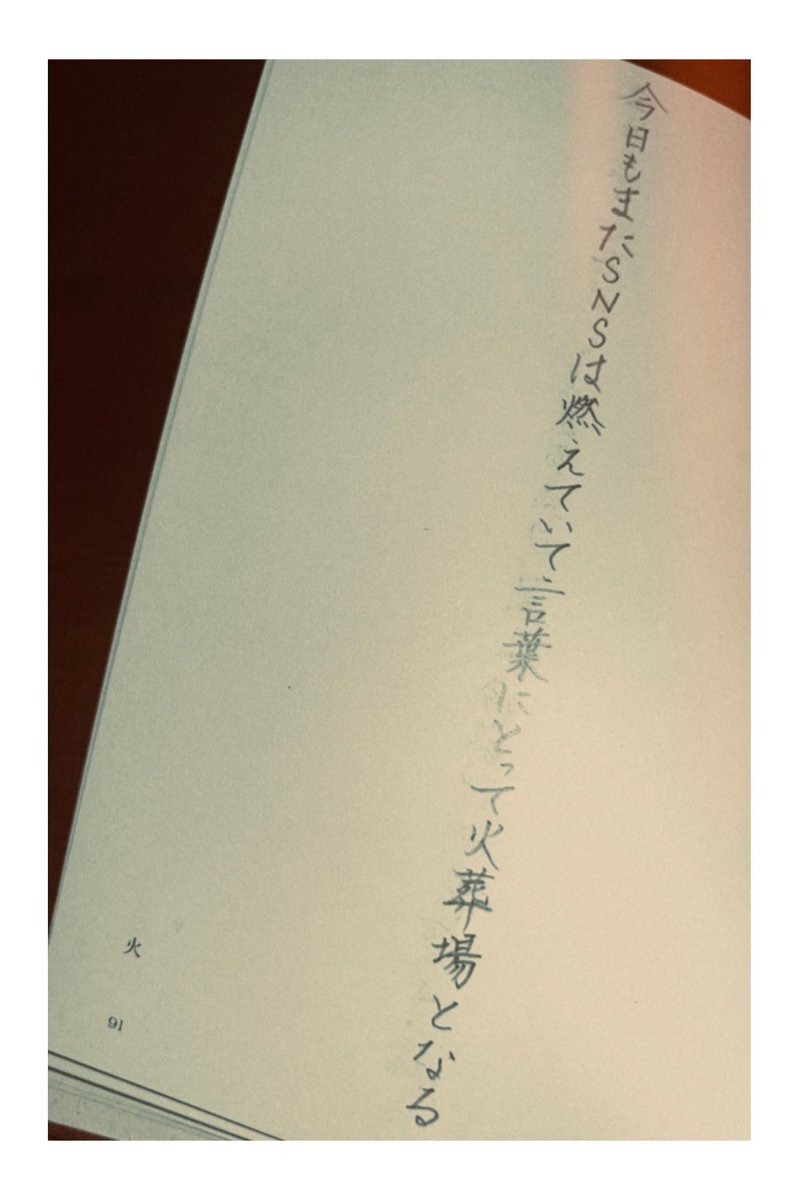 今日もまたSNSは燃えていて言葉にとって火葬場となる
火
91